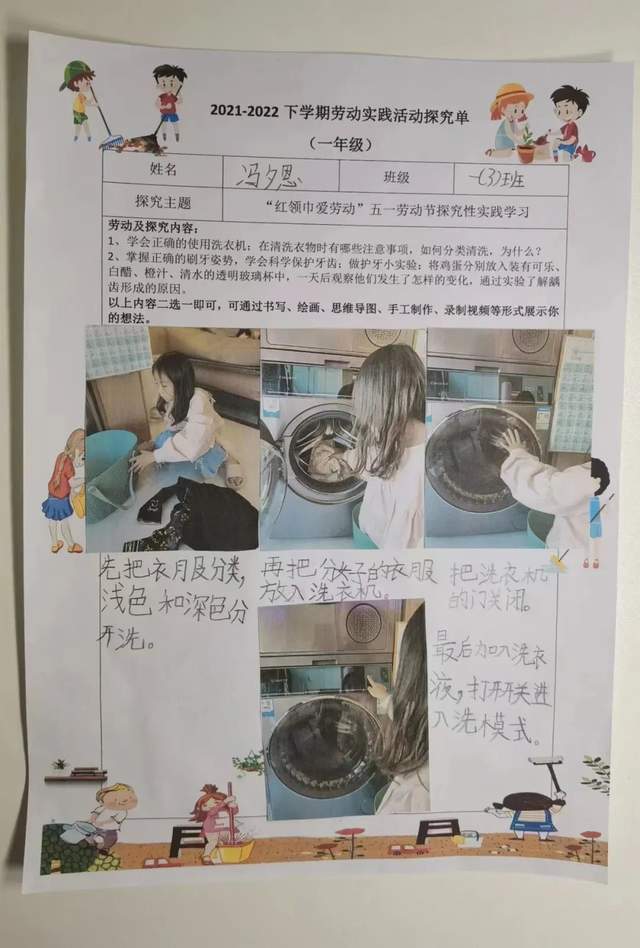 2021-2022 下学期劳动实践活动探究单
（一年级）
姓名 冯夕恩 班级 一(3)班
探究主题 “红领巾爱劳动”五一劳动节探究性实践学习
劳动及探究内容：
1、学会正确的使用洗衣机：在清洗衣物时有哪些注意事项，如何分类清洗，为什么？
2、掌握正确的刷牙姿势，学会科学保护牙齿；做护牙小实验：将鸡蛋分别放入装有可乐、
白醋、橙汁、清水的透明玻璃杯中，一天后观察他们发生了怎样的变化，通过实验了解龋
齿形成的原因。
以上内容二选一即可，可通过书写、绘画、思维导图、手工制作、录制视频等形式展示你
的想法。
先把衣服分类，
浅色和深色分
开洗。
再把分好的衣服
放入洗衣机。
把洗衣机
的门关闭。
最后加入洗衣
液，打开开关进
入洗模式。